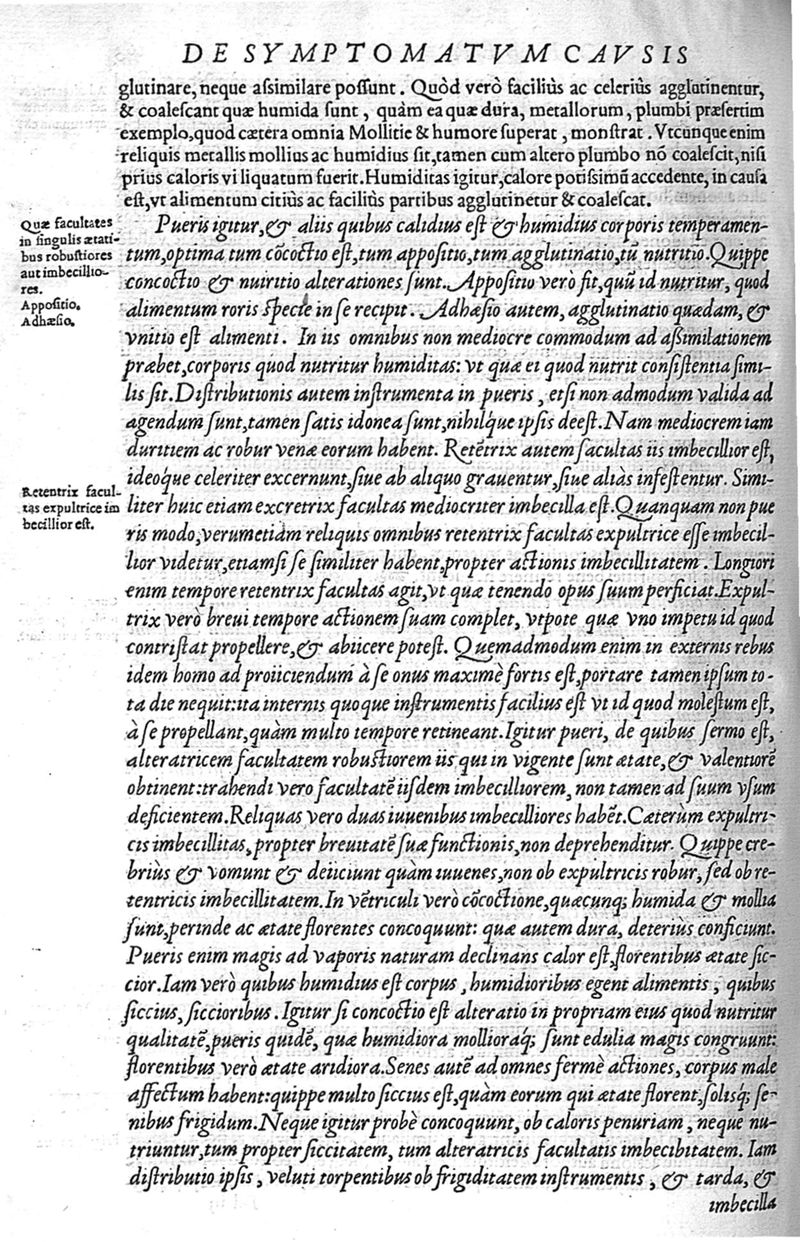 DE SYMPTOMATVM CAVSIS
glutinare, neque aſsimilare poſſunt. Quòd verò faciliùs ac celeriùs agglutinentur,
& coaleſcant quæ humida ſunt, quàm ea quæ dura, metallorum, plumbi præſertim
exemplo, quod cætera omnia Mollitie & humore ſuperat, monſtrat. Vtcunque enim
reliquis metallis mollius ac humidius ſit, tamen cum altero plumbo nō coaleſcit, niſi
prius caloris vi liquatum fuerit. Humiditas igitur, calore potiſsimū accedente, in cauſa
eſt, vt alimentum citiùs ac faciliùs partibus agglutinetur & coaleſcat.
Quæ facultates
in ſingulis ætati-
bus robuſtiores
aut imbecillio-
res.
Appoſitio.
Adhæſio.
Pueris igitur, & aliis quibus calidius eſt & humidius corporis temperamen-
tum, optima tum cōcoctio eſt, tum appoſitio, tum agglutinatio, tū nutritio. Quippe
concoctio & nutritio alterationes ſunt. Appoſitio verò fit, quū id nutritur, quod
alimentum roris ſpecie in ſe recipit. Adhæſio autem, agglutinatio quædam, &
vnitio eſt alimenti. In iis omnibus non mediocre commodum ad aſsimilationem
præbet, corporis quod nutritur humiditas: vt quæ ei quod nutrit conſiſtentia ſimi-
lis ſit. Diſtributionis autem inſtrumenta in pueris, etſi non admodum valida ad
agendum ſunt, tamen ſatis idonea ſunt, nihilq́ue ipſis deeſt. Nam mediocrem iam
duritiem ac robur venæ eorum habent. Retētrix autem facultas iis imbecillior eſt,
ideoq́ue celeriter excernunt, ſiue ab aliquo grauentur, ſiue aliàs infeſtentur. Simi-
Retentrix facul-
tas expultrice im
becillior eſt.
liter huic etiam excretrix facultas mediocriter imbecilla eſt. Quanquam non pue
ris modo, verumetiam reliquis omnibus retentrix facultas expultrice eſſe imbecil-
lior videtur, etiamſi ſe ſimiliter habent, propter actionis imbecillitatem. Longiori
enim tempore retentrix facultas agit, vt quæ tenendo opus ſuum perficiat. Expul-
trix verò breui tempore actionem ſuam complet, vtpote quæ vno impetu id quod
contriſtat propellere, & abiicere poteſt. Quemadmodum enim in externis rebus
idem homo ad proiiciendum à ſe onus maximè fortis eſt, portare tamen ipſum to-
ta die nequit: ita internis quoque inſtrumentis facilius eſt vt id quod moleſtum eſt,
à ſe propellant, quàm multo tempore retineant. Igitur pueri, de quibus ſermo eſt,
alteratricem facultatem robuſtiorem iis qui in vigente ſunt ætate, & valentiorē
obtinent: trahendi vero facultatē iiſdem imbecilliorem, non tamen ad ſuum vſum
deficientem. Reliquas vero duas iuuenibus imbecilliores habēt. Cæterùm expultri-
cis imbecillitas, propter breuitatē ſuæ functionis, non deprehenditur. Quippe cre-
briùs & vomunt & deiiciunt quàm iuuenes, non ob expultricis robur, ſed ob re-
tentricis imbecillitatem. In vētriculi verò cōcoctione, quæcunq; humida & mollia
ſunt, perinde ac ætate florentes concoquunt: quæ autem dura, deteriùs conficiunt.
Pueris enim magis ad vaporis naturam declinans calor eſt, florentibus ætate ſic-
cior. Iam verò quibus humidius eſt corpus, humidioribus egent alimentis, quibus
ſiccius, ſiccioribus. Igitur ſi concoctio eſt alteratio in propriam eius quod nutritur
qualitatē, pueris quidē, quæ humidiora mollioraq́; ſunt edulia magis congruunt:
florentibus verò ætate aridiora. Senes autē ad omnes fermè actiones, corpus male
affectum habent: quippe multo ſiccius eſt, quàm eorum qui ætate florent, ſolisq́; ſe-
nibus frigidum. Neque igitur probè concoquunt, ob caloris penuriam, neque nu-
triuntur, tum propter ſiccitatem, tum alteratricis facultatis imbecibitatem. Iam
diſtributio ipſis, veluti torpentibus ob frigiditatem inſtrumentis, & tarda, &
imbecilla